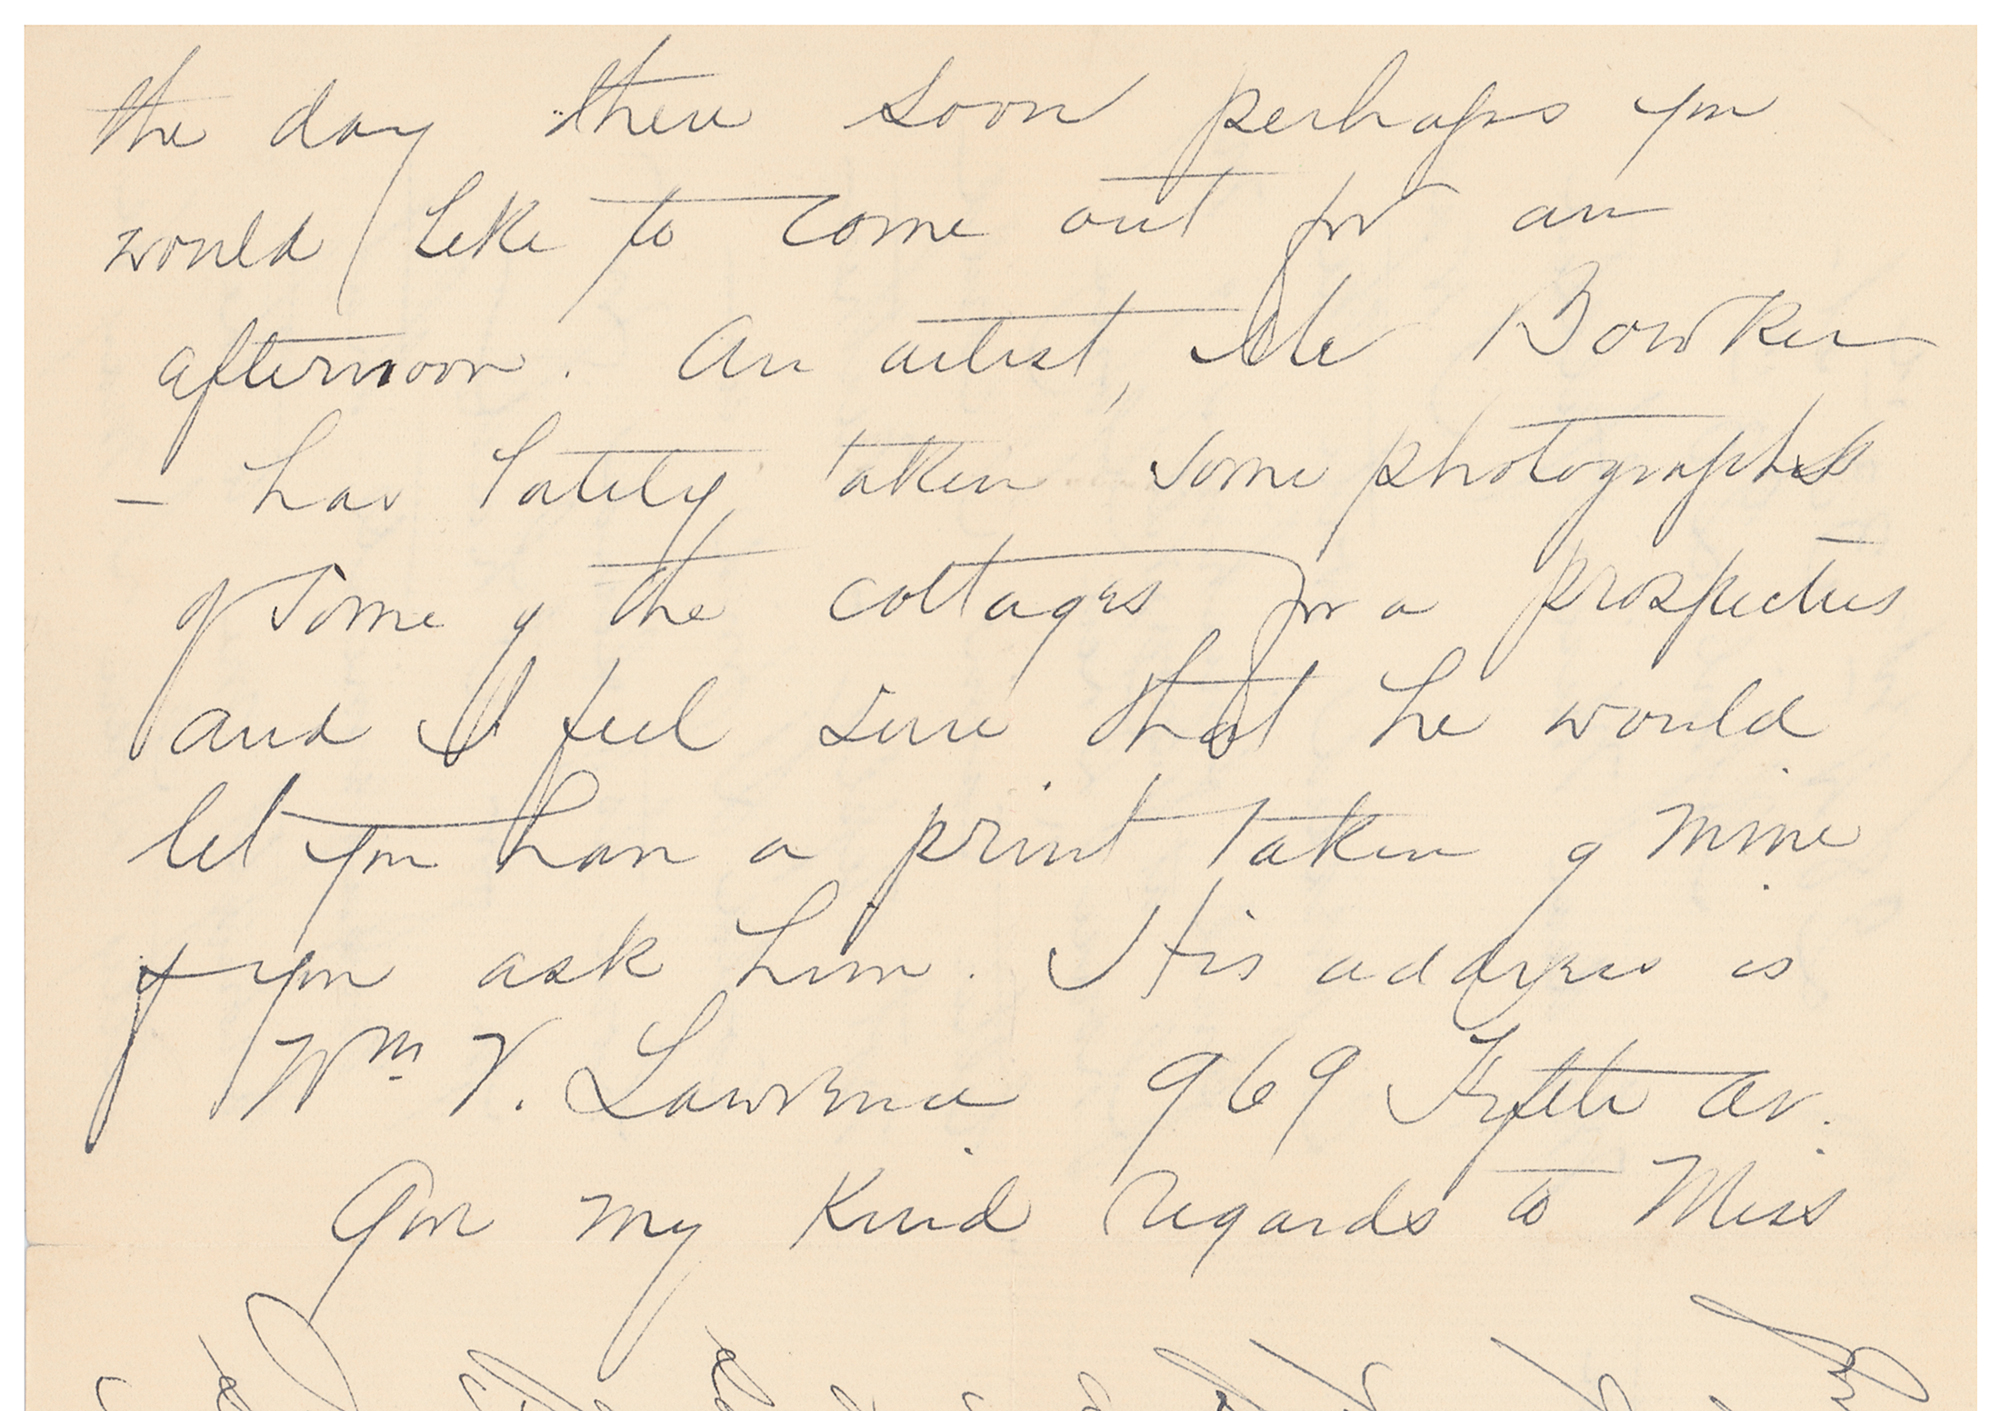 the day there soon perhaps you
would like to come out for an
afternoon. An artist, Mr Bowker
– has lately taken some photographs
of some of the cottages for a prospectus
and I feel sure that he would
let you have a print taken of mine
if you ask him. His address is
Wm V. Lawrence 969 Fifth Av.
Give my kind regards to Miss